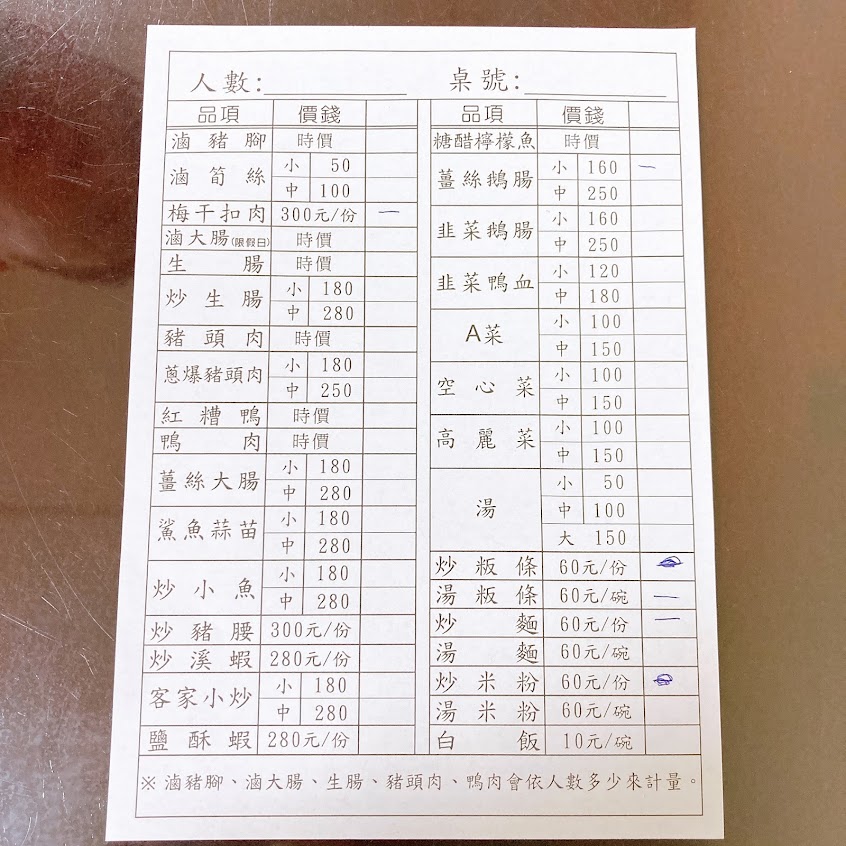 人數: 桌號:
品項 價錢
滷豬腳 時價
滷筍絲 小 50
中 100
梅干扣肉 300元/份 一
滷大腸(限假日) 時價
生腸 時價
炒生腸 小 180
中 280
豬頭肉 時價
蔥爆豬頭肉 小 180
中 250
紅糟鴨 時價
鴨肉 時價
薑絲大腸 小 180
中 280
鯊魚蒜苗 小 180
中 280
炒小魚 小 180
中 280
炒豬腰 300元/份
炒溪蝦 280元/份
客家小炒 小 180
中 280
鹽酥蝦 280元/份
品項 價錢
糖醋檸檬魚 時價
薑絲鵝腸 小 160 一
中 250
韭菜鵝腸 小 160
中 250
韭菜鴨血 小 120
中 180
A菜 小 100
中 150
空心菜 小 100
中 150
高麗菜 小 100
中 150
湯 小 50
中 100
大 150
炒粄條 60元/份
湯粄條 60元/碗 一
炒麵 60元/份 一
湯麵 60元/碗
炒米粉 60元/份
湯米粉 60元/碗
白飯 10元/碗
※滷豬腳、滷大腸、生腸、豬頭肉、鴨肉會依人數多少來計量。